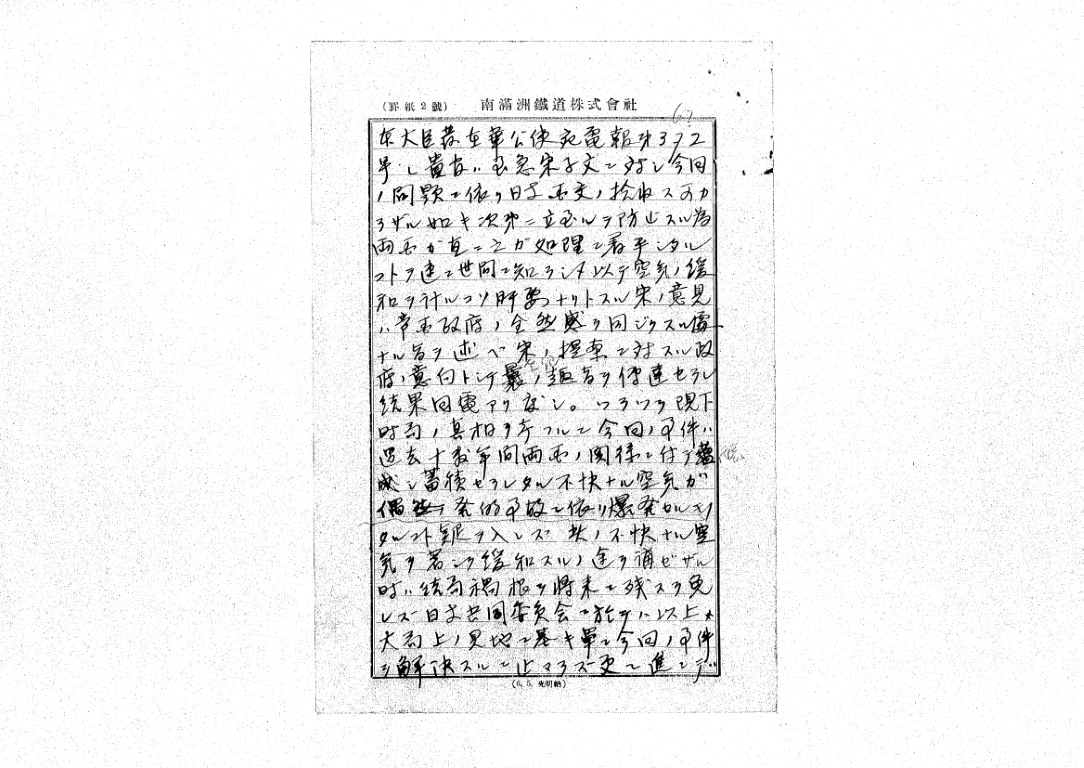 (罫紙2號) 南滿洲鐵道株式會社
大臣發在華公使宛電報第372
号シ貴官ハ至急宋子文ニ対シ今回
ノ問題ニ依リ日支国交ノ拾收スベカ
ラザル如キ次第ニ立至ルヲ防止スル為
両国ガ直ニ之ガ処理ニ着手シタル
コトヲ速ニ世間ニ知ラシメ以テ空気ノ緩
和ヲ計ルコソ肝要ナリトスル宋ノ意見
ハ帝国政府ノ全然感ヲ同ジクスル
ナル旨ヲ述ベ宋ノ提案ニ対スル政
府ノ意向トシテ ノ趣旨ヲ傳達セラレ
結果回電アリ度シ。 現下
時局ノ真相ヲ考フルニ今回ノ事件ハ
過去十数年間両国ノ関係ニ付テ
成シ蓄積セラレタル不快ナル空気ガ
偶 発的事故ニ依リ爆発セルモノ
タルコト疑ヲ入レズ 此ノ不快ナル空
気ヲ著シク緩和スルノ途ヲ講ゼザル
時ハ結局禍根ヲ将来ニ残スヲ免
レズ日支共同委員会ニ於テハ以上
大局上ノ見地ニ基キ単ニ今回ノ事件
ヲ解決スルニ止マラズ更ニ進ンデ